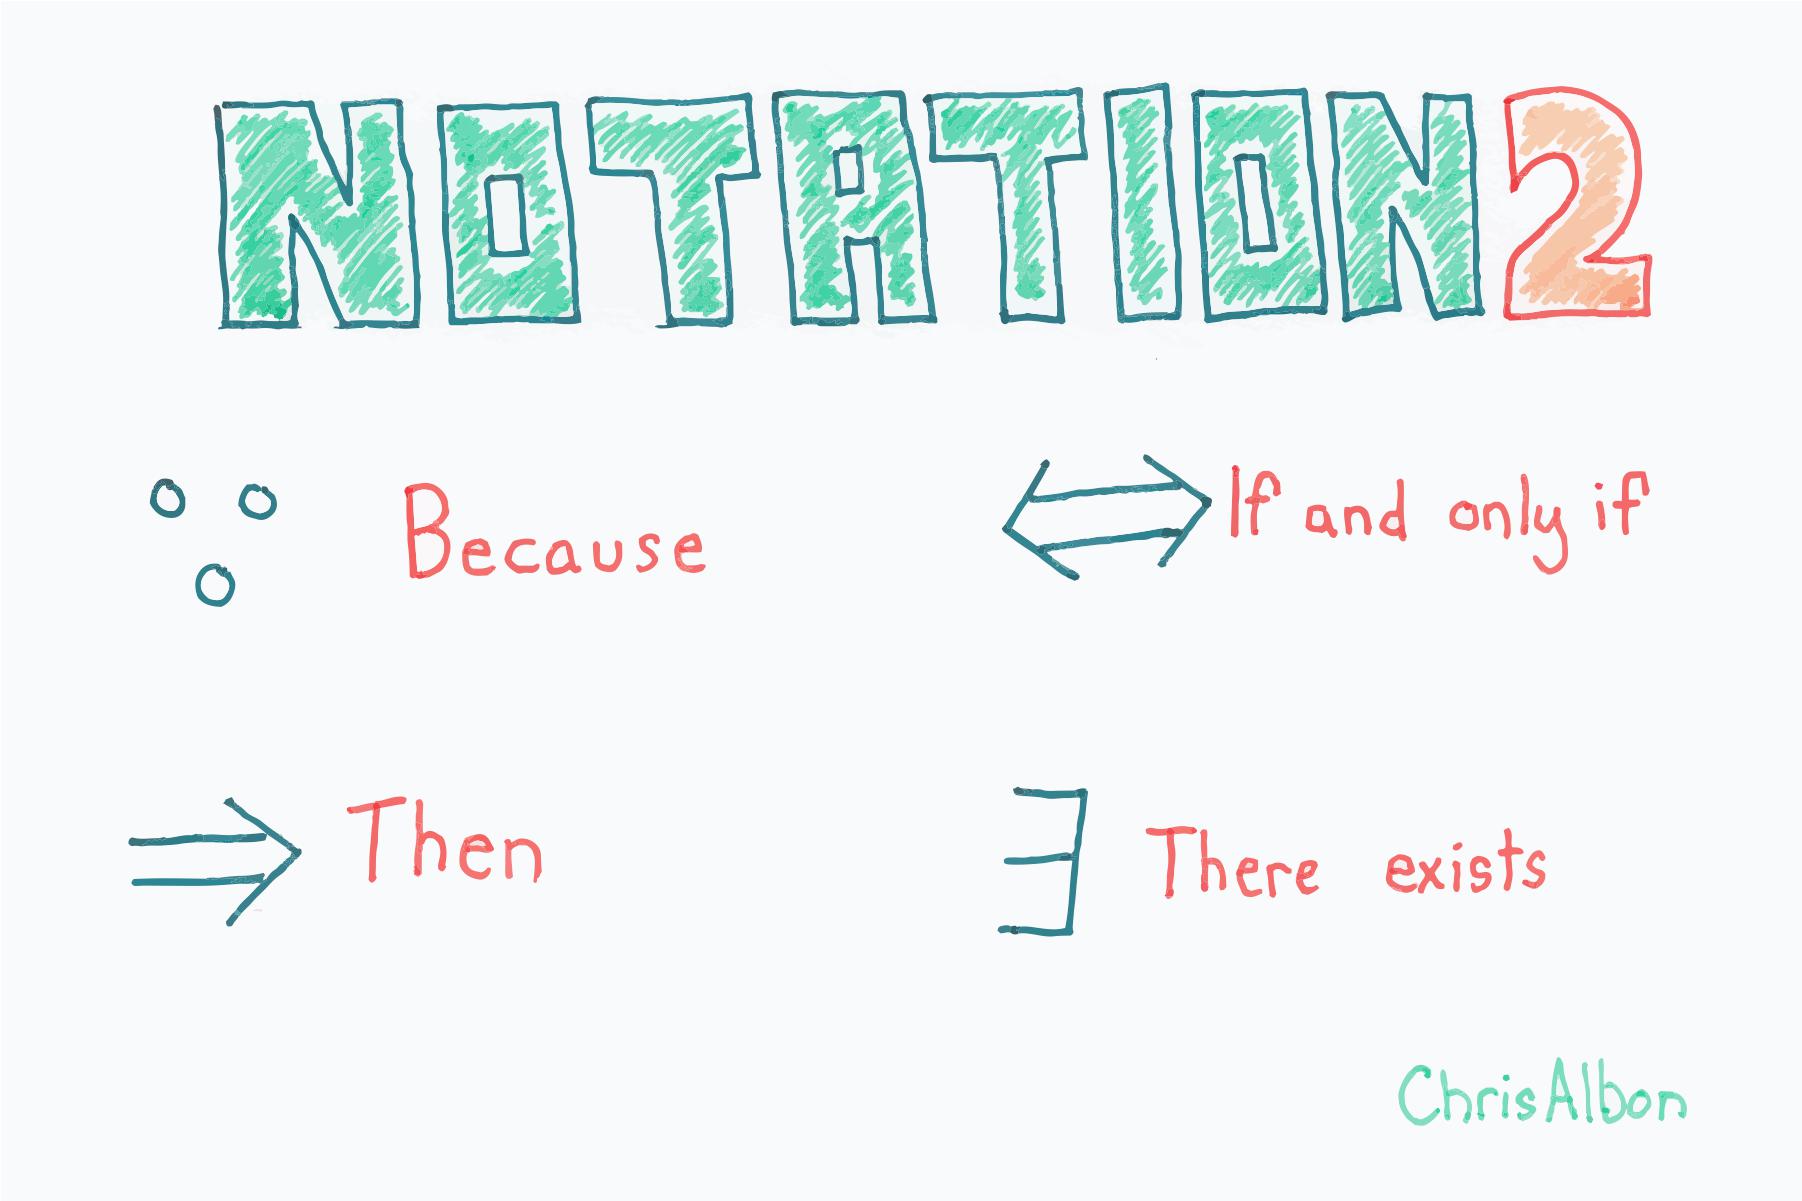 NOTATION2
∵ Because
⇔ If and only if
⇒ Then
∃ There exists
ChrisAlbon